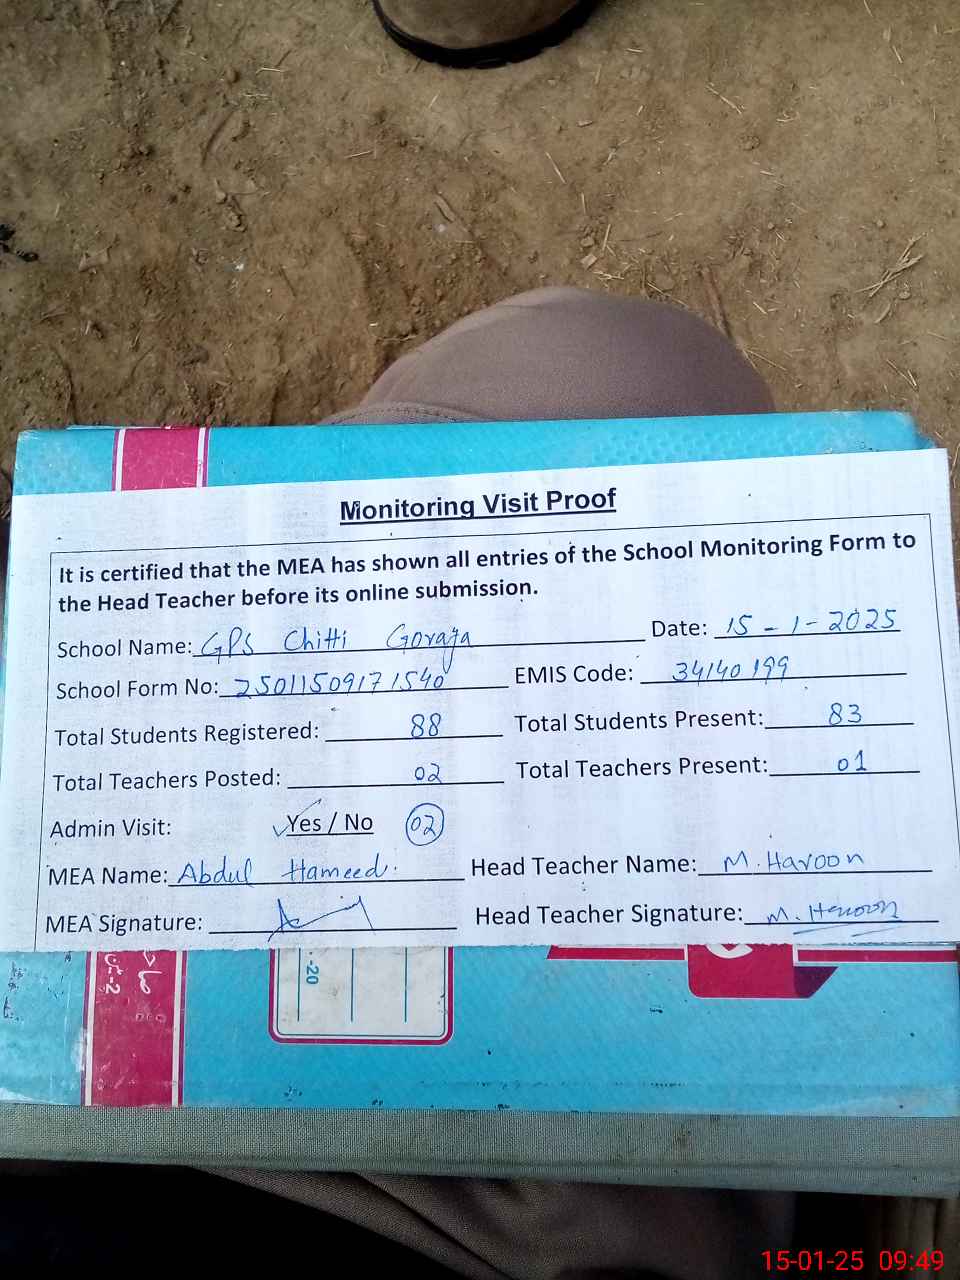 Monitoring Visit Proof
It is certified that the MEA has shown all entries of the School Monitoring Form to
the Head Teacher before its online submission.
School Name: GPS Chitti Goraya Date: 15-1-2025
School Form No: 25011509171540 EMIS Code: 34140199
Total Students Registered: 88 Total Students Present: 83
Total Teachers Posted: 02 Total Teachers Present: 01
Admin Visit: Yes / No 02
MEA Name: Abdul Hameed Head Teacher Name: M. Haroon
MEA Signature: Head Teacher Signature: M. Haroon
-20
15-01-25 09:49